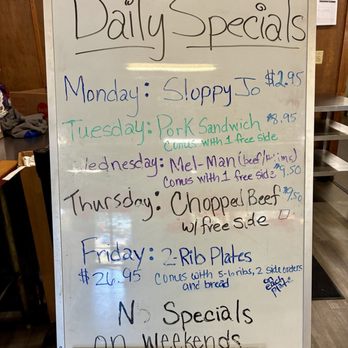 Daily Specials
Monday: Sloppy Jo $2.95
Tuesday: Pork Sandwich $8.95
Comes with 1 free side
Wednesday: Mel-Man (beef/
Comes with 1 free side 9.50
Thursday: Chopped Beef $9.50
w/free side
Friday: 2-Rib Plates
$26.95 Comes with 5-6 ribs, 2 side orders
and bread
on each plate
No Specials
on weekends